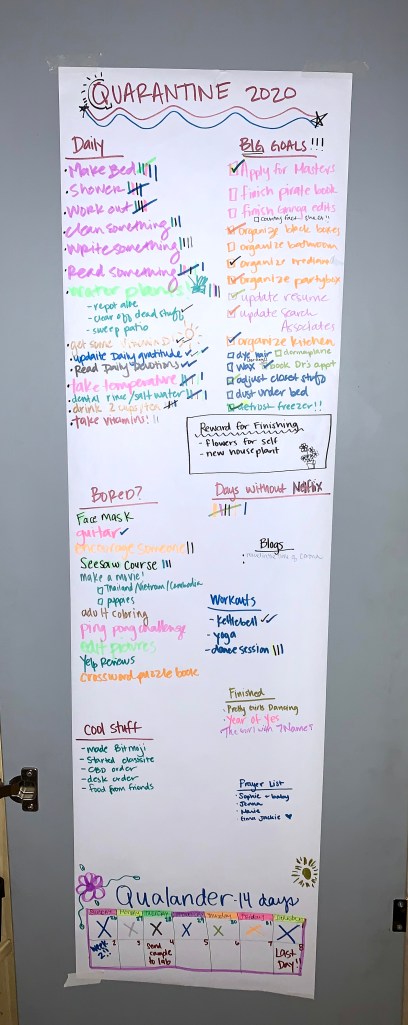 QUARANTINE 2020
Daily
• Make Bed
• Shower
• Work out
• clean something
• write something
• Read something
• water plants!
- repot aloe
- clear off dead stuff
- sweep patio
• get some Vitamin D!
• update Daily gratitude
• Read Daily Devotions
• take temperature
• dental rinse/salt water
• drink 2 cups tea
• take vitamins!
BIG GOALS!!!
Apply for Masters
finish pirate book
finish Ganga edits
organize black boxes
organize bedroom
organize medicine
organize partybox
update resume
update search
Associates
organize kitchen
dye hair
dermaplane
wax
book Dr's appt
adjust closet stuff
dust under bed
defrost freezer!!
Reward for Finishing
- flowers for self
- new houseplant
BORED?
Face Mask
guitar
encourage someone
Seesaw Course
make a movie!
Thailand/Vietnam/Cambodia
puppies
adult coloring
Ping pong challenge
edit pictures
Yelp Reviews
crossword puzzle book
Days without Netflix
Blogs
Workouts
- kettlebell
- yoga
- dance session
Finished
• Pretty Girls Dancing
• Year of Yes
• The Girl with 7 Names
COOL STUFF
- made Bitmoji
- Started classsite
- CBD order
- desk order
- food from friends
Prayer List
• Sophie + baby
• Jenna
• Marie
Jackie
Qualander-14 days
Sunday Monday Tuesday Wednesday Thursday Friday Saturday
26 27 28 29 30 31
Week 2!! 2 3 4 5 6 7 8
Send sample to lab
Last Day!